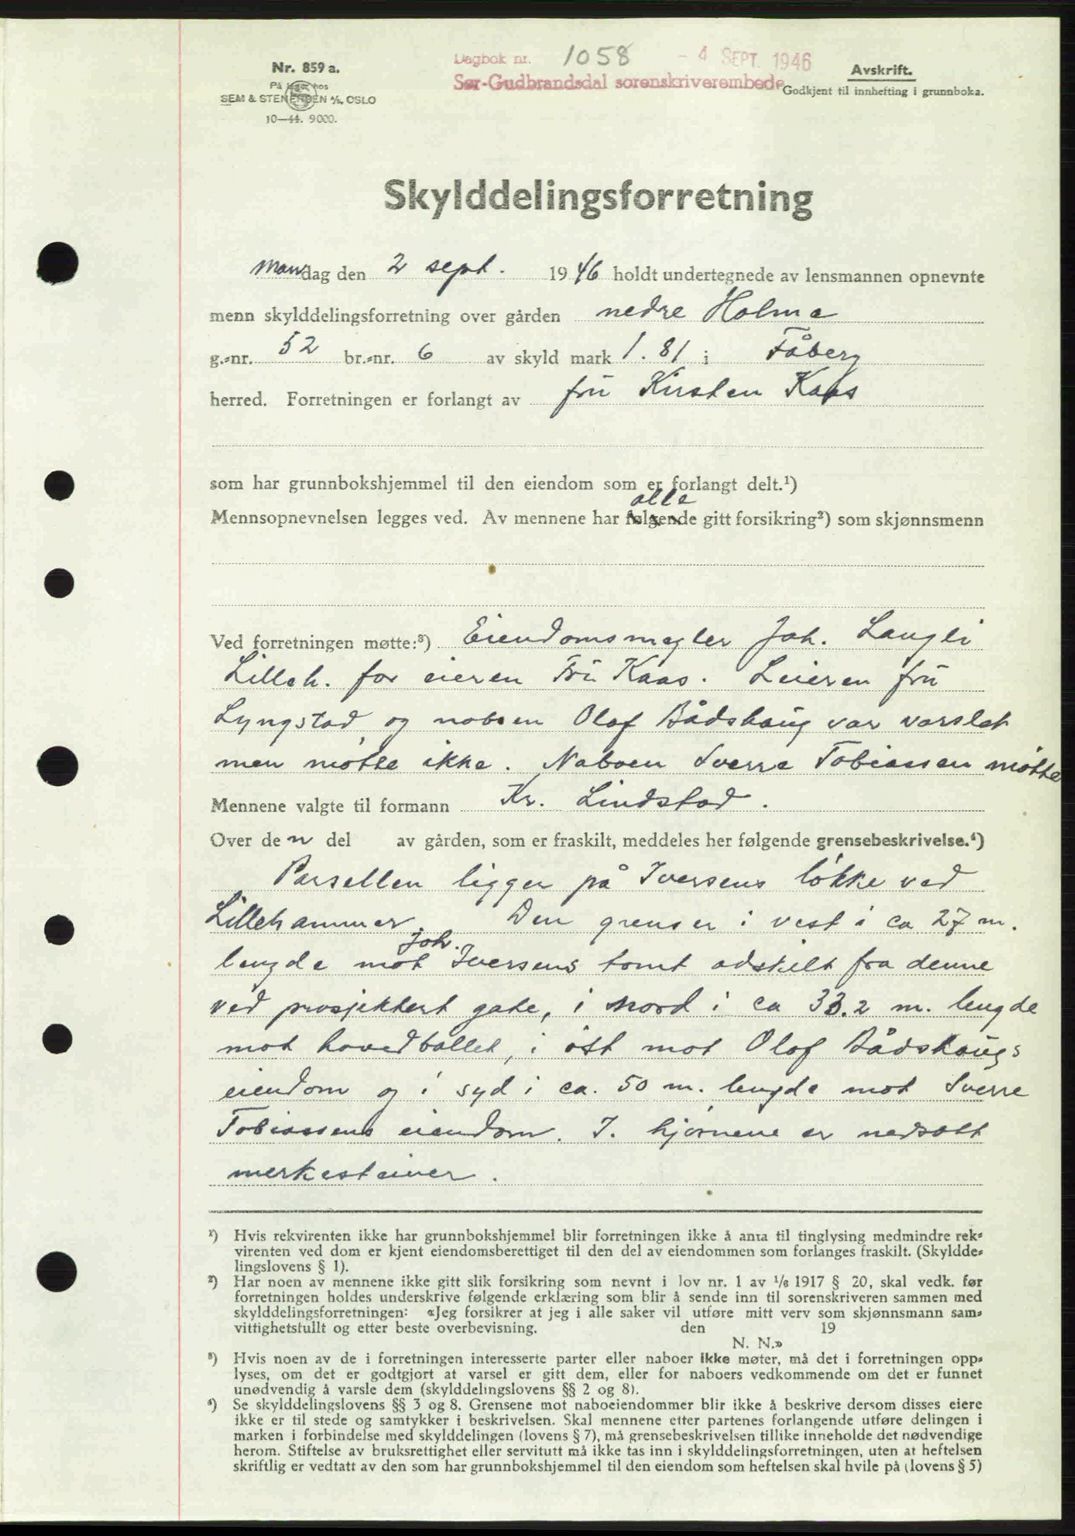 Nr. 859 a.
På lager hos
SEM & STENERSEN A/S, OSLO
10—44. 9000.
Dagbok nr. 1058 - 4 SEPT. 1946
Sør-Gudbrandsdal sorenskriverembede
Avskrift.
Godkjent til innhefting i grunnboka.
Skylddelingsforretning
Mandag den 2 sept. 1946 holdt undertegnede av lensmannen opnevnte
menn skylddelingsforretning over gården nedre Holme
g.-nr. 52 br.-nr. 6 av skyld mark 1.81 i Fåberg
herred. Forretningen er forlangt av fru Kirsten Kaas
som har grunnbokshjemmel til den eiendom som er forlangt delt.¹)
alle
Mennsopnevnelsen legges ved. Av mennene har følgende gitt forsikring²) som skjønnsmenn
Ved forretningen møtte:³) Eiendomsmegler Joh. Laugli
Lilleh. for eieren Fru Kaas. Leieren fru
Lyngstad og naboen Olaf Bådshaug var varslet
men møtte ikke. Naboen Sverre Tobiassen møtte
Mennene valgte til formann Kr. Lindstad.
Over den del av gården, som er fraskilt, meddeles her følgende grensebeskrivelse.⁴)
Parsellen ligger på Iversens løkke ved
Lillehammer. Den grenser i vest i ca 27 m.
Joh.
lengde mot Iversens tomt adskilt fra denne
ved prosjektert gate, i nord i ca 33.2 m. lengde
mot hovedbøllet, i øst mot Olaf Bådshaugs
eiendom og i syd i ca. 50 m. lengde mot Sverre
Tobiassens eiendom. I hjørnene er nedsatt
merkesteiner.
¹) Hvis rekvirenten ikke har grunnbokshjemmel blir forretningen ikke å anta til tinglysing medmindre rek-
virenten ved dom er kjent eiendomsberettiget til den del av eiendommen som forlanges fraskilt. (Skyldde-
lingslovens § 1).
²) Har noen av mennene ikke gitt slik forsikring som nevnt i lov nr. 1 av 1/6 1917 § 20, skal vedk. før
forretningen holdes underskrive følgende erklæring som blir å sende inn til sorenskriveren sammen med
skylddelingsforretningen: «Jeg forsikrer at jeg i alle saker vil utføre mitt verv som skjønnsmann sam-
vittighetsfullt og etter beste overbevisning. den 19
N. N.»
³) Hvis noen av de i forretningen interesserte parter eller naboer ikke møter, må det i forretningen opp-
lyses, om det er godtgjort at varsel er gitt dem, eller for naboers vedkommende om det er funnet
unødvendig å varsle dem (skylddelingslovens §§ 2 og 8).
⁴) Se skylddelingslovens §§ 3 og 8. Grensene mot naboeiendommer blir ikke å beskrive dersom disses eiere
ikke er til stede og samtykker i beskrivelsen. Skal mennene etter partenes forlangende utføre delingen i
marken i forbindelse med skylddelingen (lovens § 7), må grensebeskrivelsen tillike inneholde det nødvendige
herom. Stiftelse av bruksrettighet eller servitutt må ikke tas inn i skylddelingsforretningen, uten at heftelsen
skriftlig er vedtatt av den som har grunnbokshjemmel til den eiendom som heftelsen skal hvile på (lovens § 5)